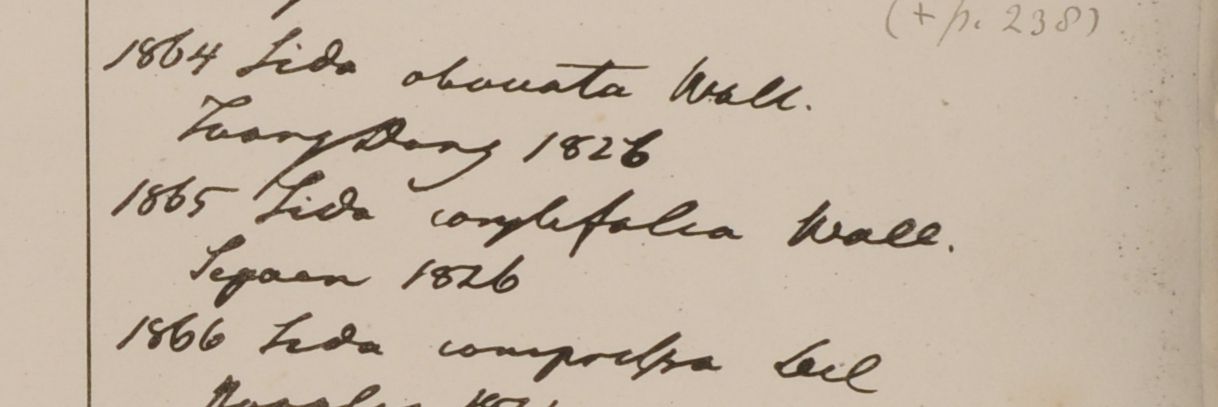 (+ p. 238)
1864 Sida obovata Wall.
Taong Dong 1826
1865 Sida corylifolia Wall.
Segaen 1826
1866 Sida compressa Wall